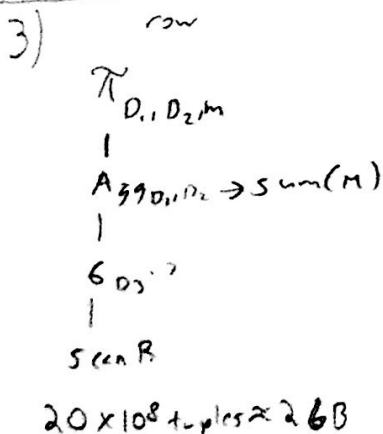 3)
row
π D1, D2, M
|
Agg D1, D2 → sum(M)
|
σ D3
|
scan R
20 × 10⁸ tuples ≈ 2GB